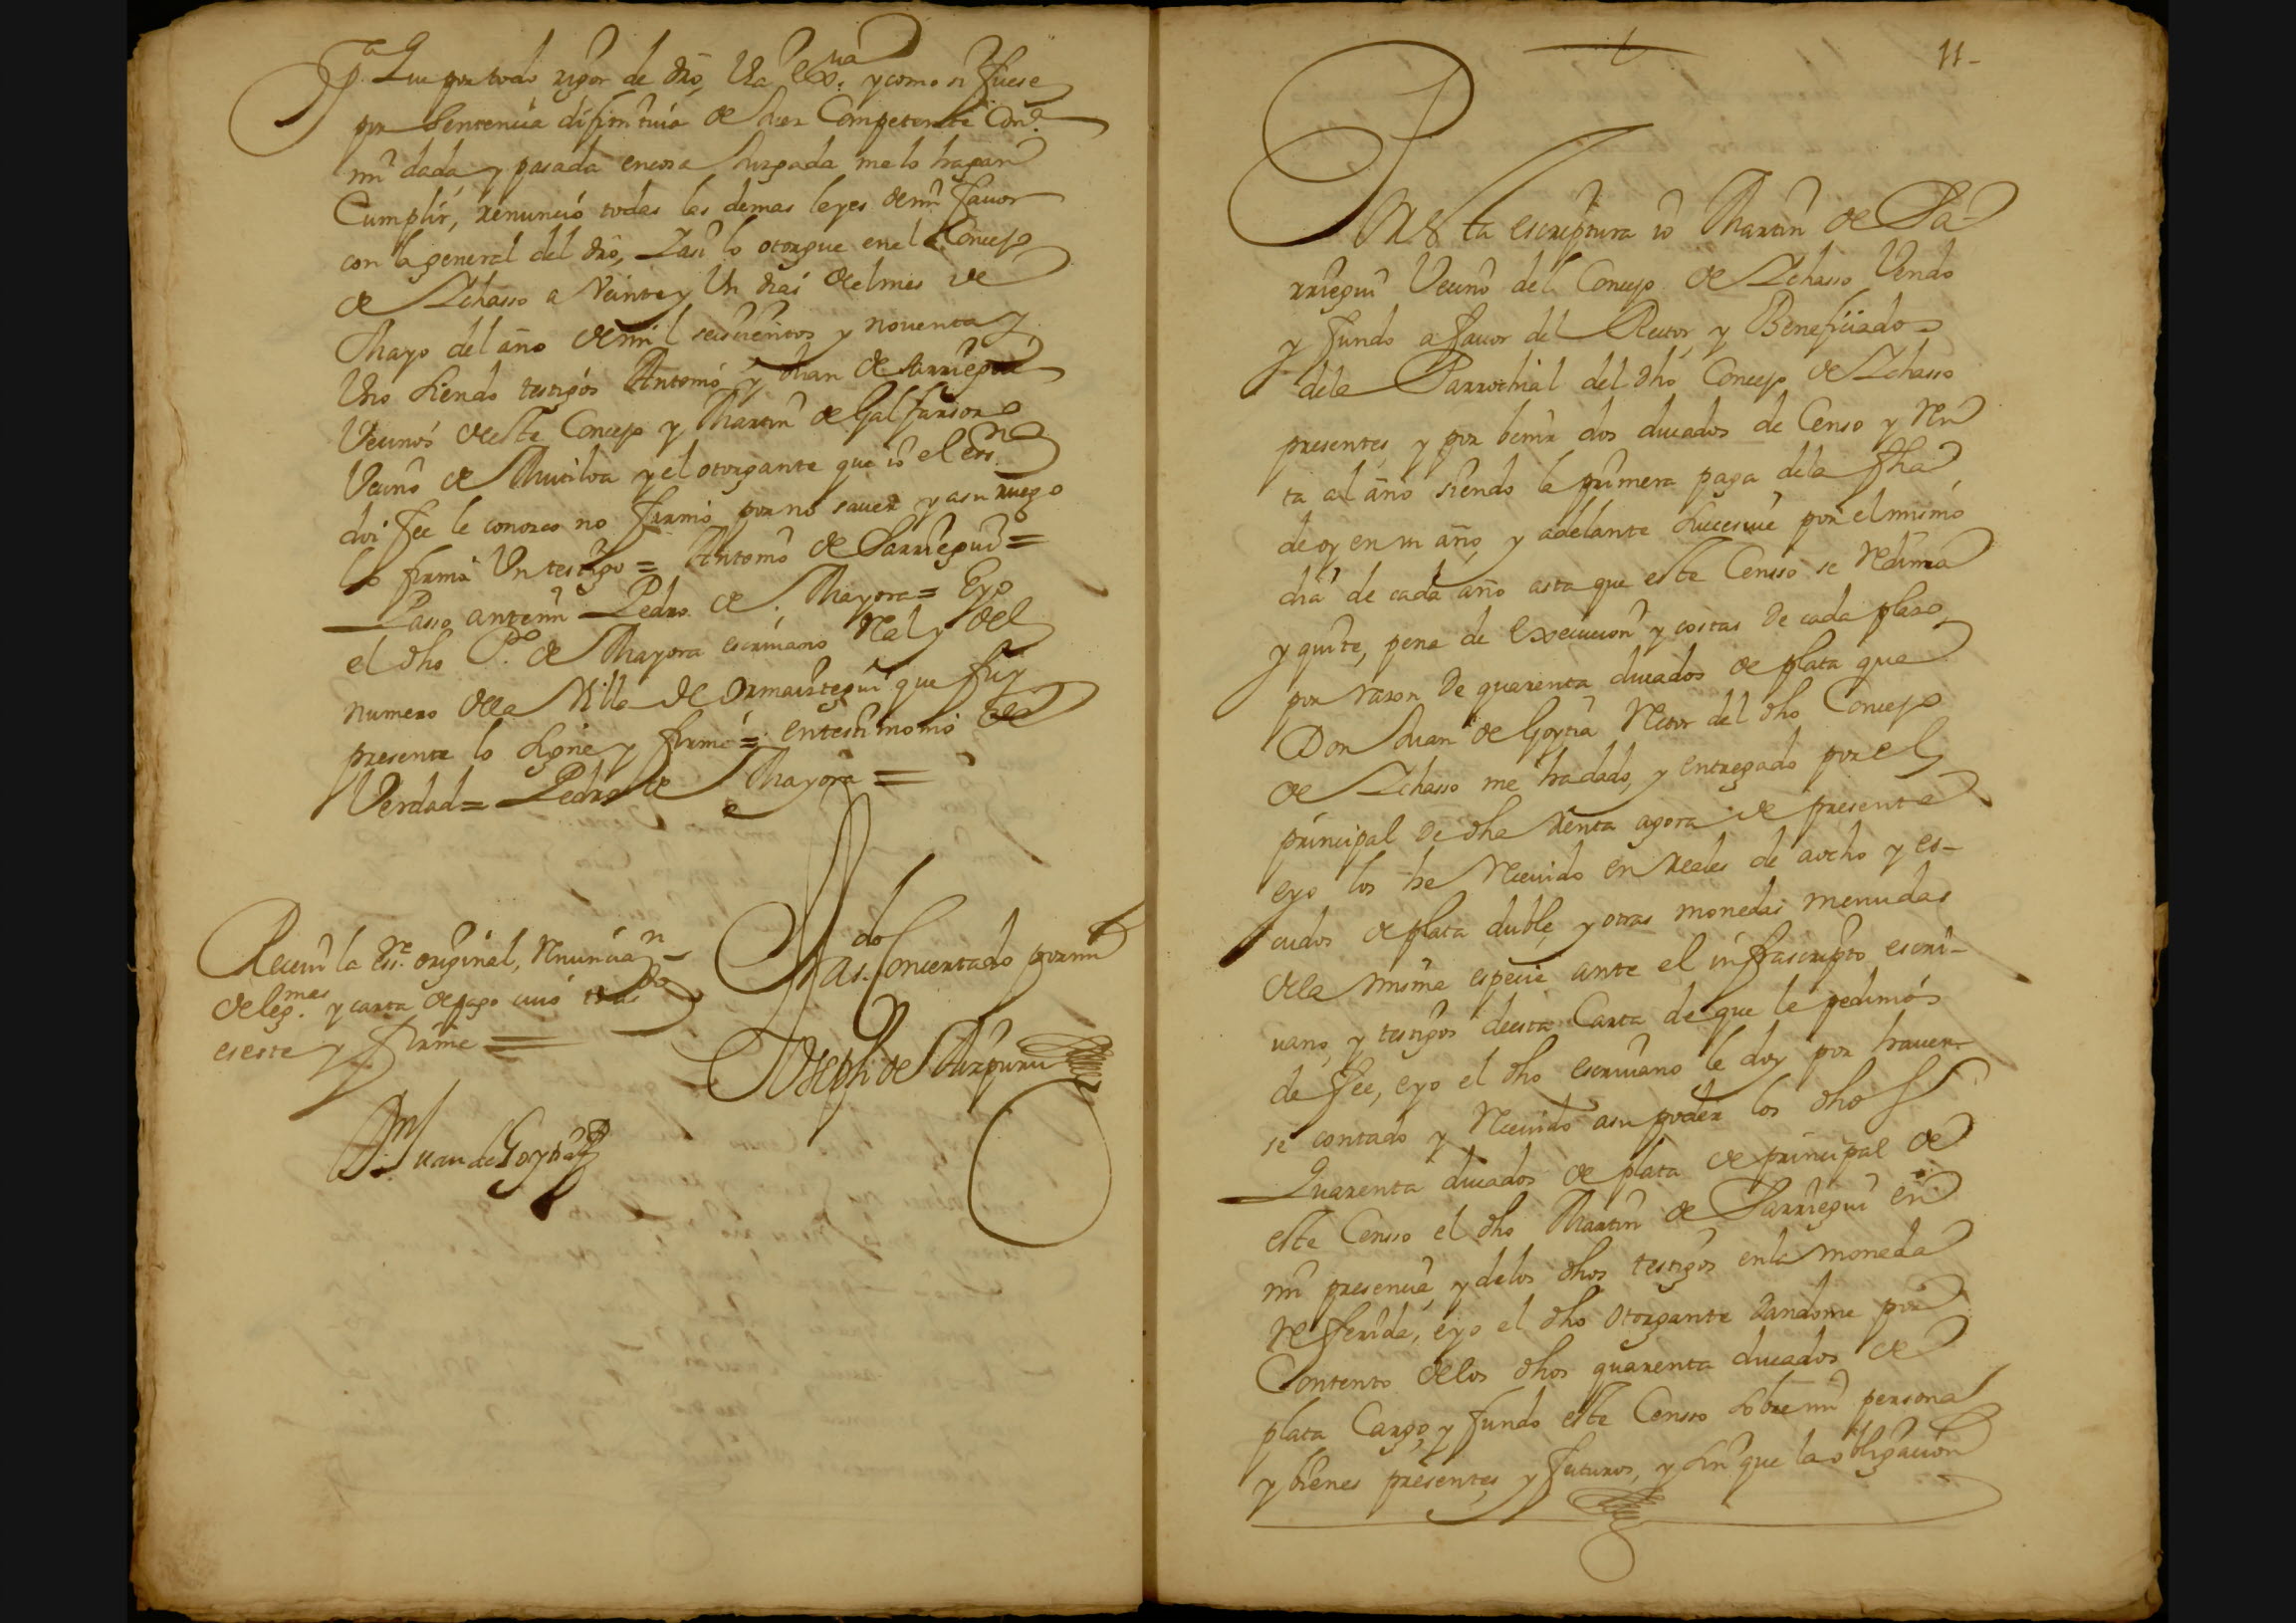 Pa. Que por todo rigor de dro, Via exa. y como si fuese
por Sentencia difinitiua de Juez Competente Conª.
mi dada y pasada en cosa Juzgada me lo hagan
Cumplir, renunció todas las demas leyes de mi fauor
con la general del dro, Y asi lo otorgue en el Concejo
de Ychasso a Veinte y Un dias del mes de
Mayo del año de mil seiscientos y nouenta y
Uno siendo testigos Antonio y Juan de Sarriegui
Vecinos de este Concejo y Martin de Galfarsoro
Vecino de Mutiloa y el otorgante que io el essno.
doi fee le conozco no firmó por no sauer y a su ruego
lo firmó Un testigo = Antonio de Sarriegui =
Passo ante mi Pedro de Mayora = Eyo
el dho Po. de Mayora escriuano Real y del
numero de la Villa de Ormaiztegui que fuy
presente lo signe y firmé = en testimonio de
Verdad = Pedro de Mayora =
Receui la essra. original, Renuncian-
do leymes. y carta de pago cuio tras do
es este y firme =
Juan de Goytia
Trasdo. Concertado por mi
Joseph de Aizpuru
11-
En esta escriptura io Martin de Sa-
rriegui Vecino del Concejo de Ychasso Vendo
y fundo a fauor del Rector y Beneficiados
de la Parrochial del dho Concejo de Ychasso
presentes, y por benir dos ducados de Censo y Ren
ta al año siendo la primera paga de la fha
de oy en un año, y adelante sucesiue por el mismo
dia de cada año asta que este Censso se redima
y quite, pena de execucion y costas de cada plazo
por razon de quarenta ducados de plata que
Don Juan de Goytia Retor del dho Concejo
de Ychasso me ha dado, y entregado por el
principal de dha renta agora de presente
eyo los he Receuido en reales de aocho y es-
cudos de plata duble, y otras monedas menudas
de la misma especie ante el infrascripto escri-
uano, y testigos de esta Carta de que le pedimos
de fee, eyo el dho escriuano le doy por hauer-
se contado y Receuido a su poder los dhos
Quarenta ducados de plata de principal de
este Censso el dho Martin de Sarriegui en
mi presencia, y de los dhos testigos en la moneda
referida, eyo el dho Otorgante dandome por
Contento de los dhos quarenta ducados de
plata Cargo, y fundo este Censso sobre mi persona
y bienes presentes, y futuros, y sin que la obligacion